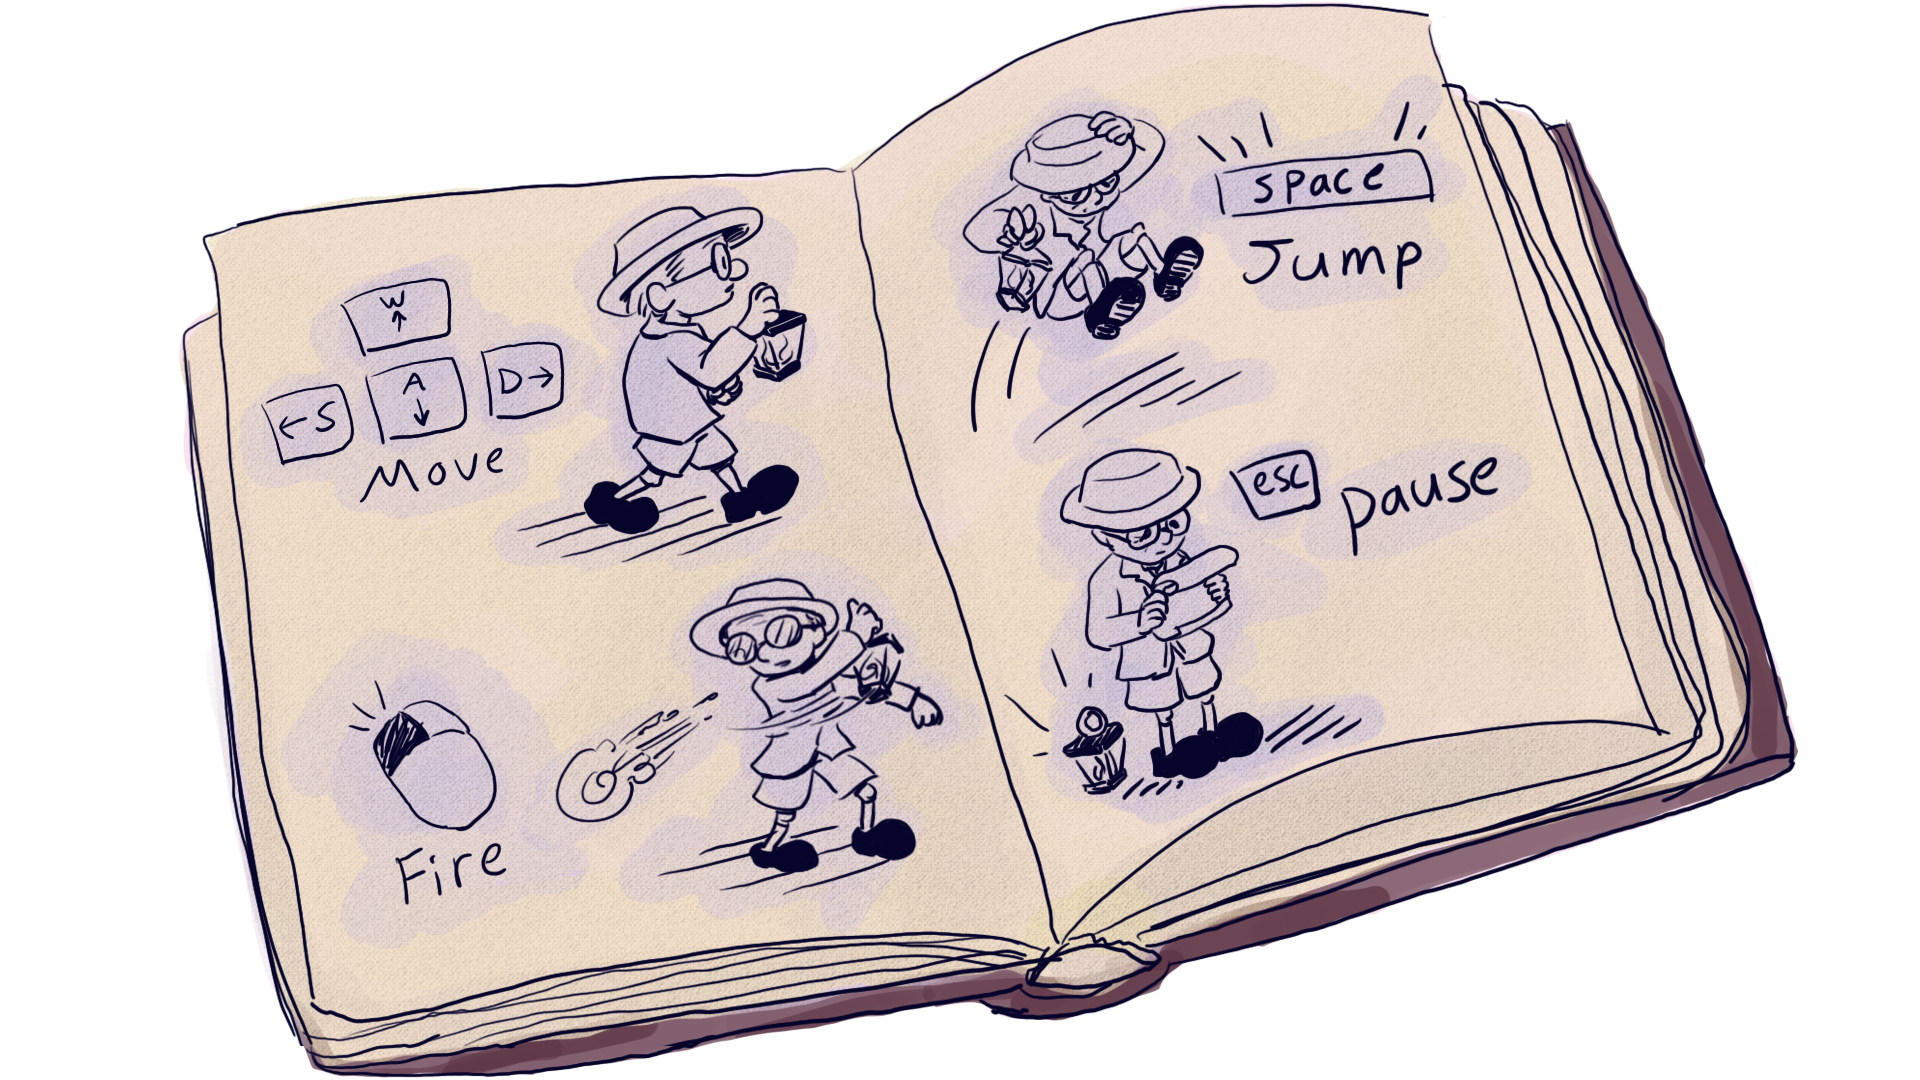 W
↑
←S
A
↓
D→
Move
Fire
space
Jump
esc
pause